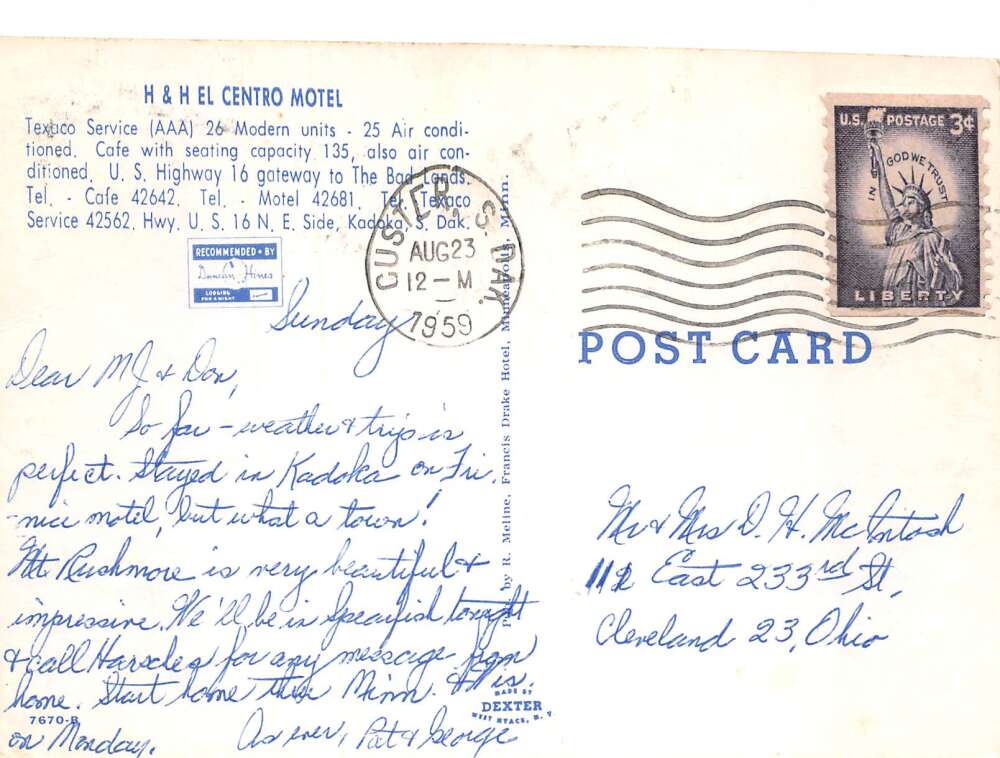 H & H EL CENTRO MOTEL
Texaco Service (AAA) 26 Modern units - 25 Air condi-
tioned. Cafe with seating capacity 135, also air con-
ditioned. U. S. Highway 16 gateway to The Bad Lands.
Tel. - Cafe 42642. Tel. - Motel 42681. Tel. Texaco
Service 42562. Hwy. U. S. 16 N. E. Side, Kadoka, S. Dak.
RECOMMENDED BY
Duncan Hines
LODGING
FOR A NIGHT
CUSTER, S. DAK.
AUG 23
12 - M
1959
U.S. POSTAGE 3¢
IN GOD WE TRUST
LIBERTY
POST CARD
Sunday
Dear MJ & Don,
So far - weather & trip is
perfect. Stayed in Kadoka on Fri.
- nice motel, but what a town!
Mt. Rushmore is very beautiful &
impressive. We'll be in Spearfish tonight
& call for any message from
home. Start home thru Minn. & Wis.
on Monday. As ever, Pat & George
7670-B
by R. Meline, Francis Drake Hotel, Minneapolis, Minn.
MADE BY
DEXTER
WEST NYACK, N. Y.
Mr & Mrs D. H. McIntosh
112 East 233rd St,
Cleveland 23, Ohio